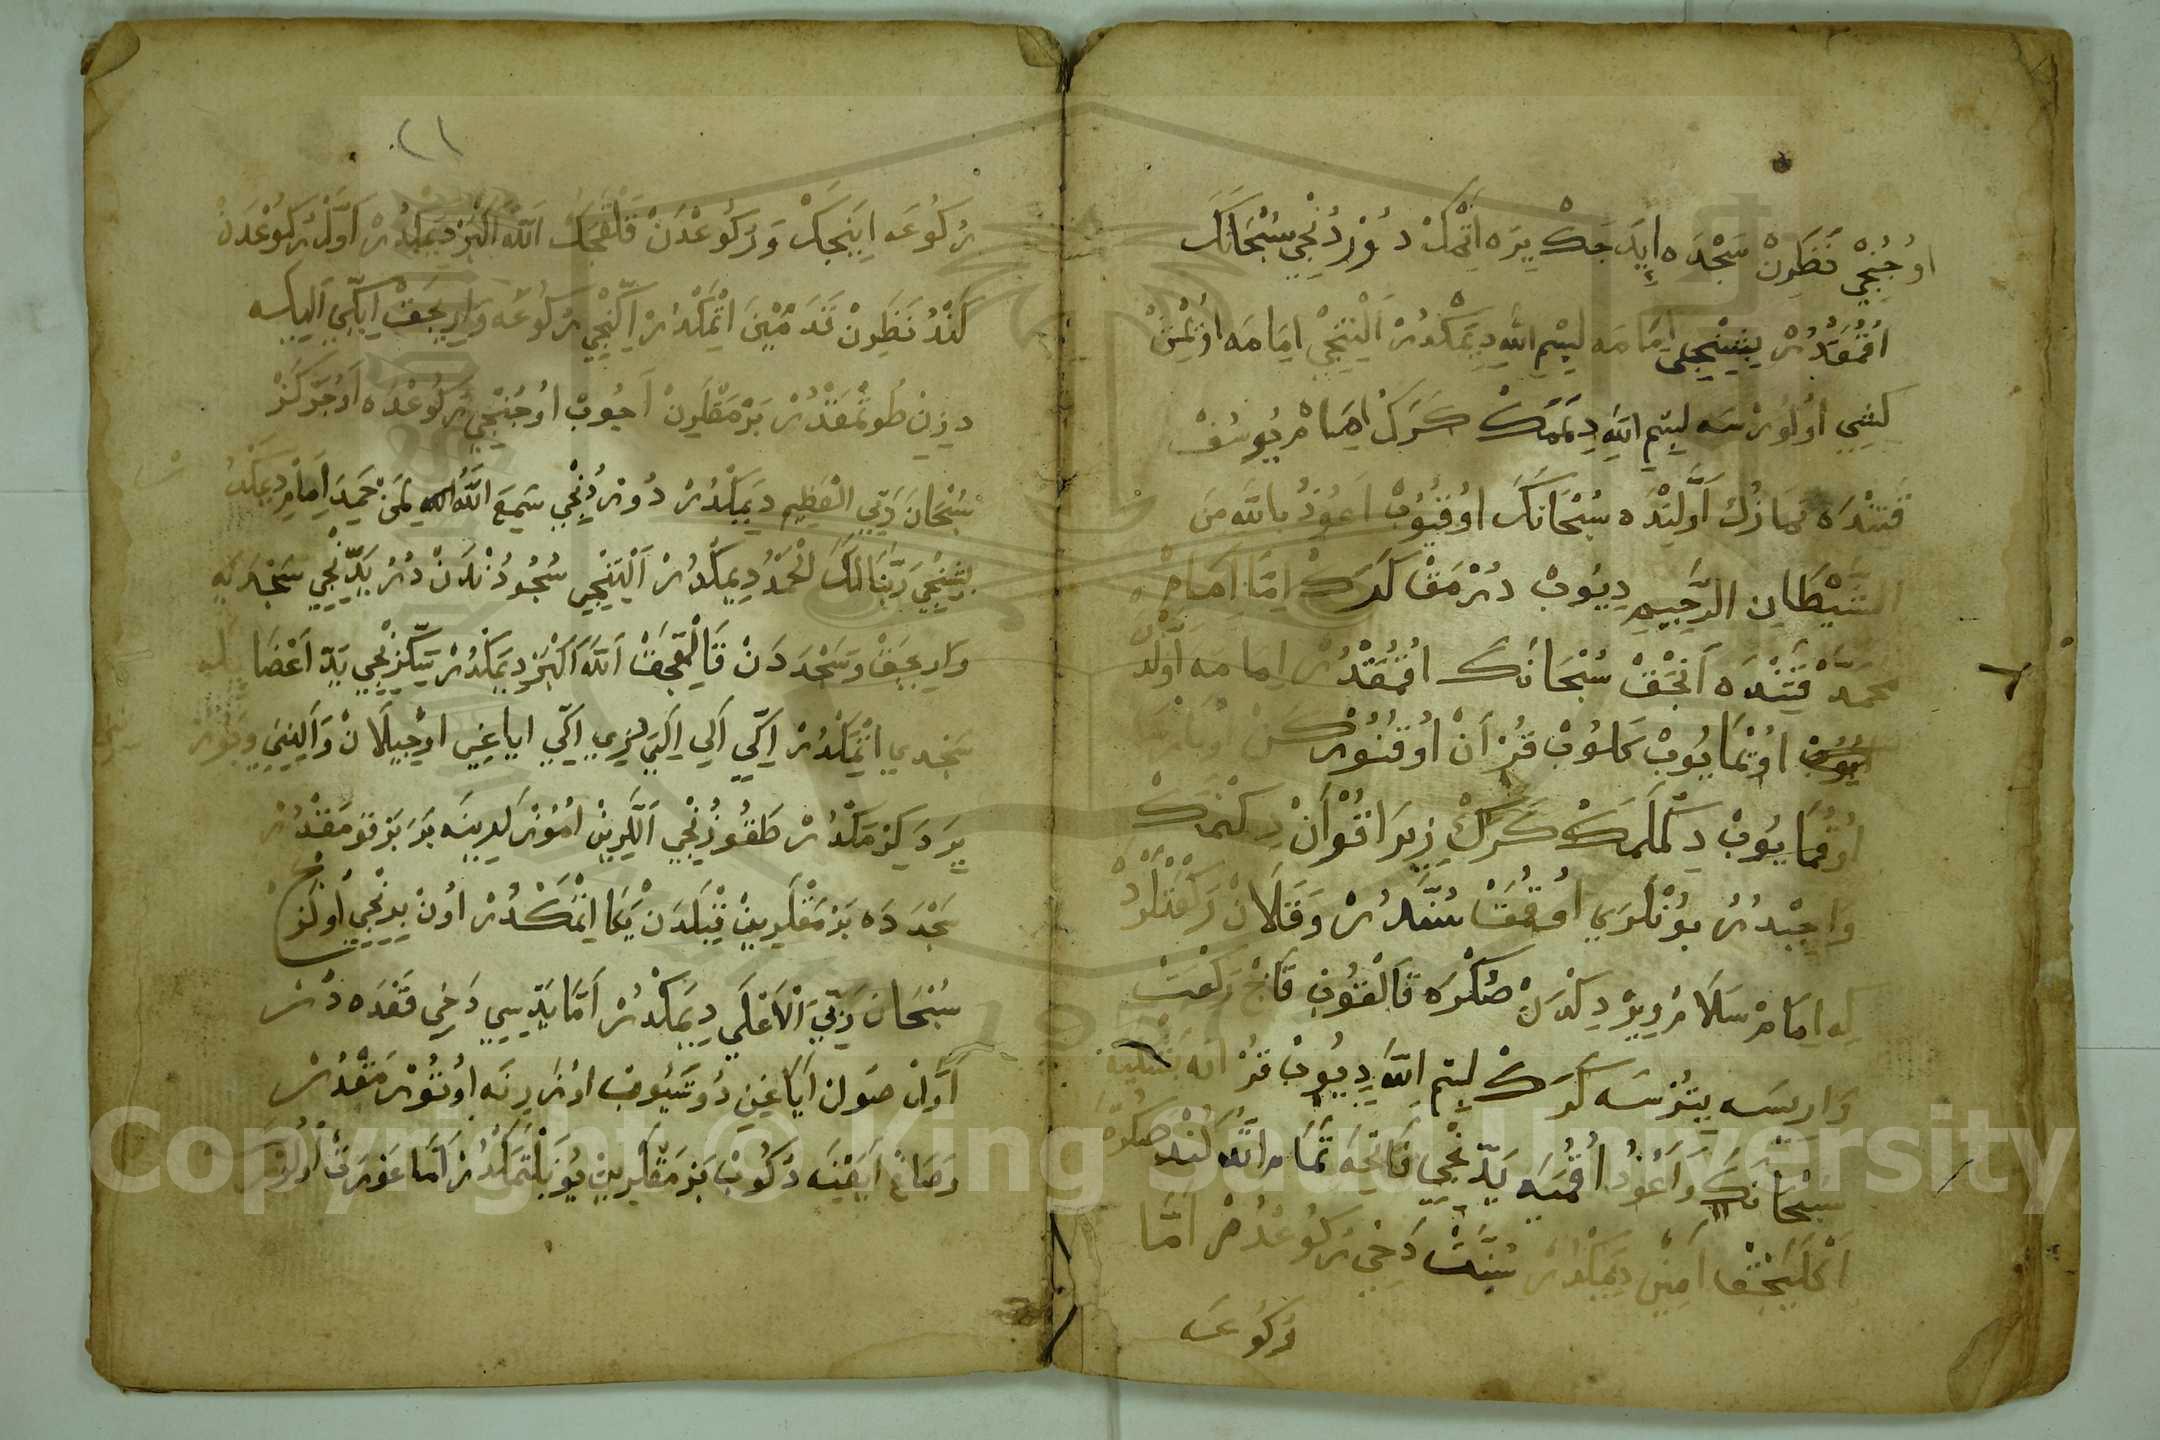 اُوجُنْجِي نَظَرِنْ سَجْدَه اِيدَجَكْ يِرَه اِتْمَكْ دُوْرْدُنْجِي سُبْحَانَكَ
اُقُمَقْدُرْ بِشِنْجِي اِمَامَه بِسْمِ اللّٰه دِيمَكْدُرْ اَلْتِنْجِي اِمَامَه اُويْمِشْ
كِشِي اُولُورْسَه بِسْمِ اللّٰه دِمَمَكْ كَرَكْ اِمَامْ يُوسُفْ
قَتِنْدَه نَمَازُكْ اَوَّلِنْدَه سُبْحَانَكَ اُوقُيُوبْ اَعُوذُ بِاللّٰه مِنَ
الشَّيْطَانِ الرَّجِيمِ دِيُوبْ دُرْمَقْ كَرَكْ اِمَّا اِمَامْ
مُحَمَّدْ قَتِنْدَه اَنْجَقْ سُبْحَانَكَ اُقُمَقْدُرْ اِمَامَه اَوَّلْدَ
اُويْمَايُوبْ كَلُوبْ قُرْاَنْ اُوقُنُورْكَنْ
اُوقُمَايُوبْ دِكْلَمَكْ كَرَكْ زِيرَا قُرْاَنْ دِكْلَمَكْ
وَاجِبْدُرْ بُونْلَرِي اُوقُمَقْ سُنَّتْدُرْ وَقَلَانْ رَكْعَتْلَرْدَ
كِه اِمَامْ سَلَامْ وِيرْدِكْدَنْ صُكْرَه قَالْقُوبْ قَاچْ رَكْعَتْ
وَارِيسَه يِتُورْسَه كَرَكْ بِسْمِ اللّٰه دِيُوبْ قُرْاَنَه بَشْلَيَه
سُبْحَانَكَ وَاَعُوذُ اُقُمَيَه يَدِنْجِي فَاتِحَه تَمَامْ اُلْدُكْدَنْ صُكْرَه
اَكْلَيَجَقْ اَمِينْ دِيمَكْدُرْ سُنَّتْ دَخِي رُكُوعْدُرْ اَمَّا
رُكُوعَه
٢١
رُكُوعَه اِينِجَكْ وَرُكُوعْدَنْ قَلْقِجَقْ اَللّٰه اَكْبَرْ دِيمَكْدُرْ اَوَّلْ رُكُوعْدَه
كَنْدُ نَظَرِنْ قَدَمِينَ اِتْمَكْدُرْ اِكِنْجِي رُكُوعَه وَارِيجَقْ اِيكِي اَلِيلَه
دِيزِنْ طُوتْمَقْدُرْ بَرْمَقْلَرِنْ اَچُوبْ اُوجُنْجِي رُكُوعْدَه اُوچْ كَزْ
سُبْحَانَ رَبِّيَ الْعَظِيمِ دِيمَكْدُرْ دُورْدُنْجِي سَمِعَ اللّٰهُ لِمَنْ حَمِدَه اِمَامْ دِيمَكْدُرْ
بِشِنْجِي رَبَّنَا لَكَ الْحَمْدُ دِيمَكْدُرْ اَلْتِنْجِي سُجُودُنْلَرَنْ دُرُ يَدِنْجِي سَجْدَيَه
وَارِيجَقْ وَسَجْدَدَنْ قَالْقِجَقْ اَللّٰه اَكْبَرْ دِيمَكْدُرْ سَكِّزِنْجِي يَدِي اَعْضَا يِلَه
سَجْدَي اِتْمَكْدُرْ اِكِي اَلِي اِكِي دِيزِي اِكِي اَيَاغِي اُوجِيلَانْ وَاَلْنِي وَبُورْنِ
يِرَه دَكُرْمَكْدُرْ طَقُوزُنْجِي اَلَّرِينِ اُمُوزْلَرِينَه بَرَبَرْ قُومَقْدُرْ
سَجْدَدَه بَرْمَقْلَرِينْ قِبْلَدَنْ يَكَا اِتْمَكْدُرْ اُونْ بِرِنْجِي اُوچْ كَزْ
سُبْحَانَ رَبِّيَ الْاَعْلَي دِيمَكْدُرْ اَمَّا يَدِيسِي دَخِي قَعْدَه دُرْ
اَوَّلْ صُولْ اَيَاغِينِ دُوشَيُوبْ اُوزَرِنَه اُوتُورْمَقْدُرْ
وَصَاغْ اَيَغِينَه دَكُوبْ بَرْمَقْلَرِينْ يُونَلْتَمَكْدُرْ اَمَّا عَوْرَتْ اُولُورْسَه